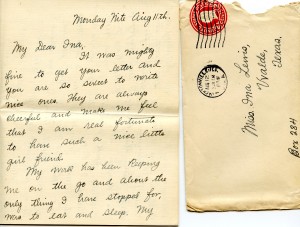 Monday Nite Aug 11th.
My Dear Ina,
It was mighty
fine to get your letter and
you are so sweet to write
nice ones. They are always
cheerful and make me feel
that I am real fortunate
to have such a nice little
girl friend.
My work has been keeping
me on the go and about the
only thing I have stopped for,
was to eat and sleep. My
Miss Ina Lewis,
Uvalde,
Texas,
Box 284